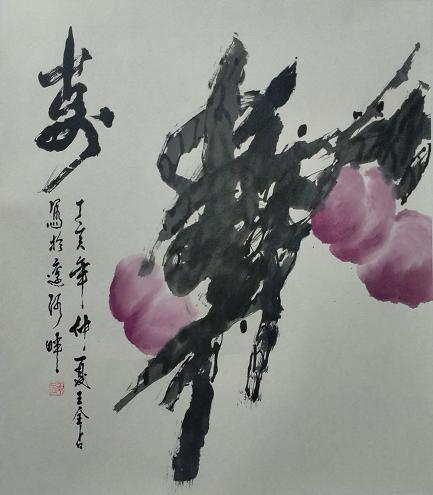 寿
丁亥年仲夏王金占
写於辽河畔